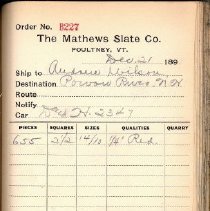 Order No. 8227
The Mathews Slate Co.
POULTNEY, VT.
Dec 21 189
Ship to Andrew Wilson
Destination Powow River N H
Route
Notify
Car 2347
PIECES SQUARES SIZES QUALITIES QUARRY
655 2 1/2 14/10 1/4" Red